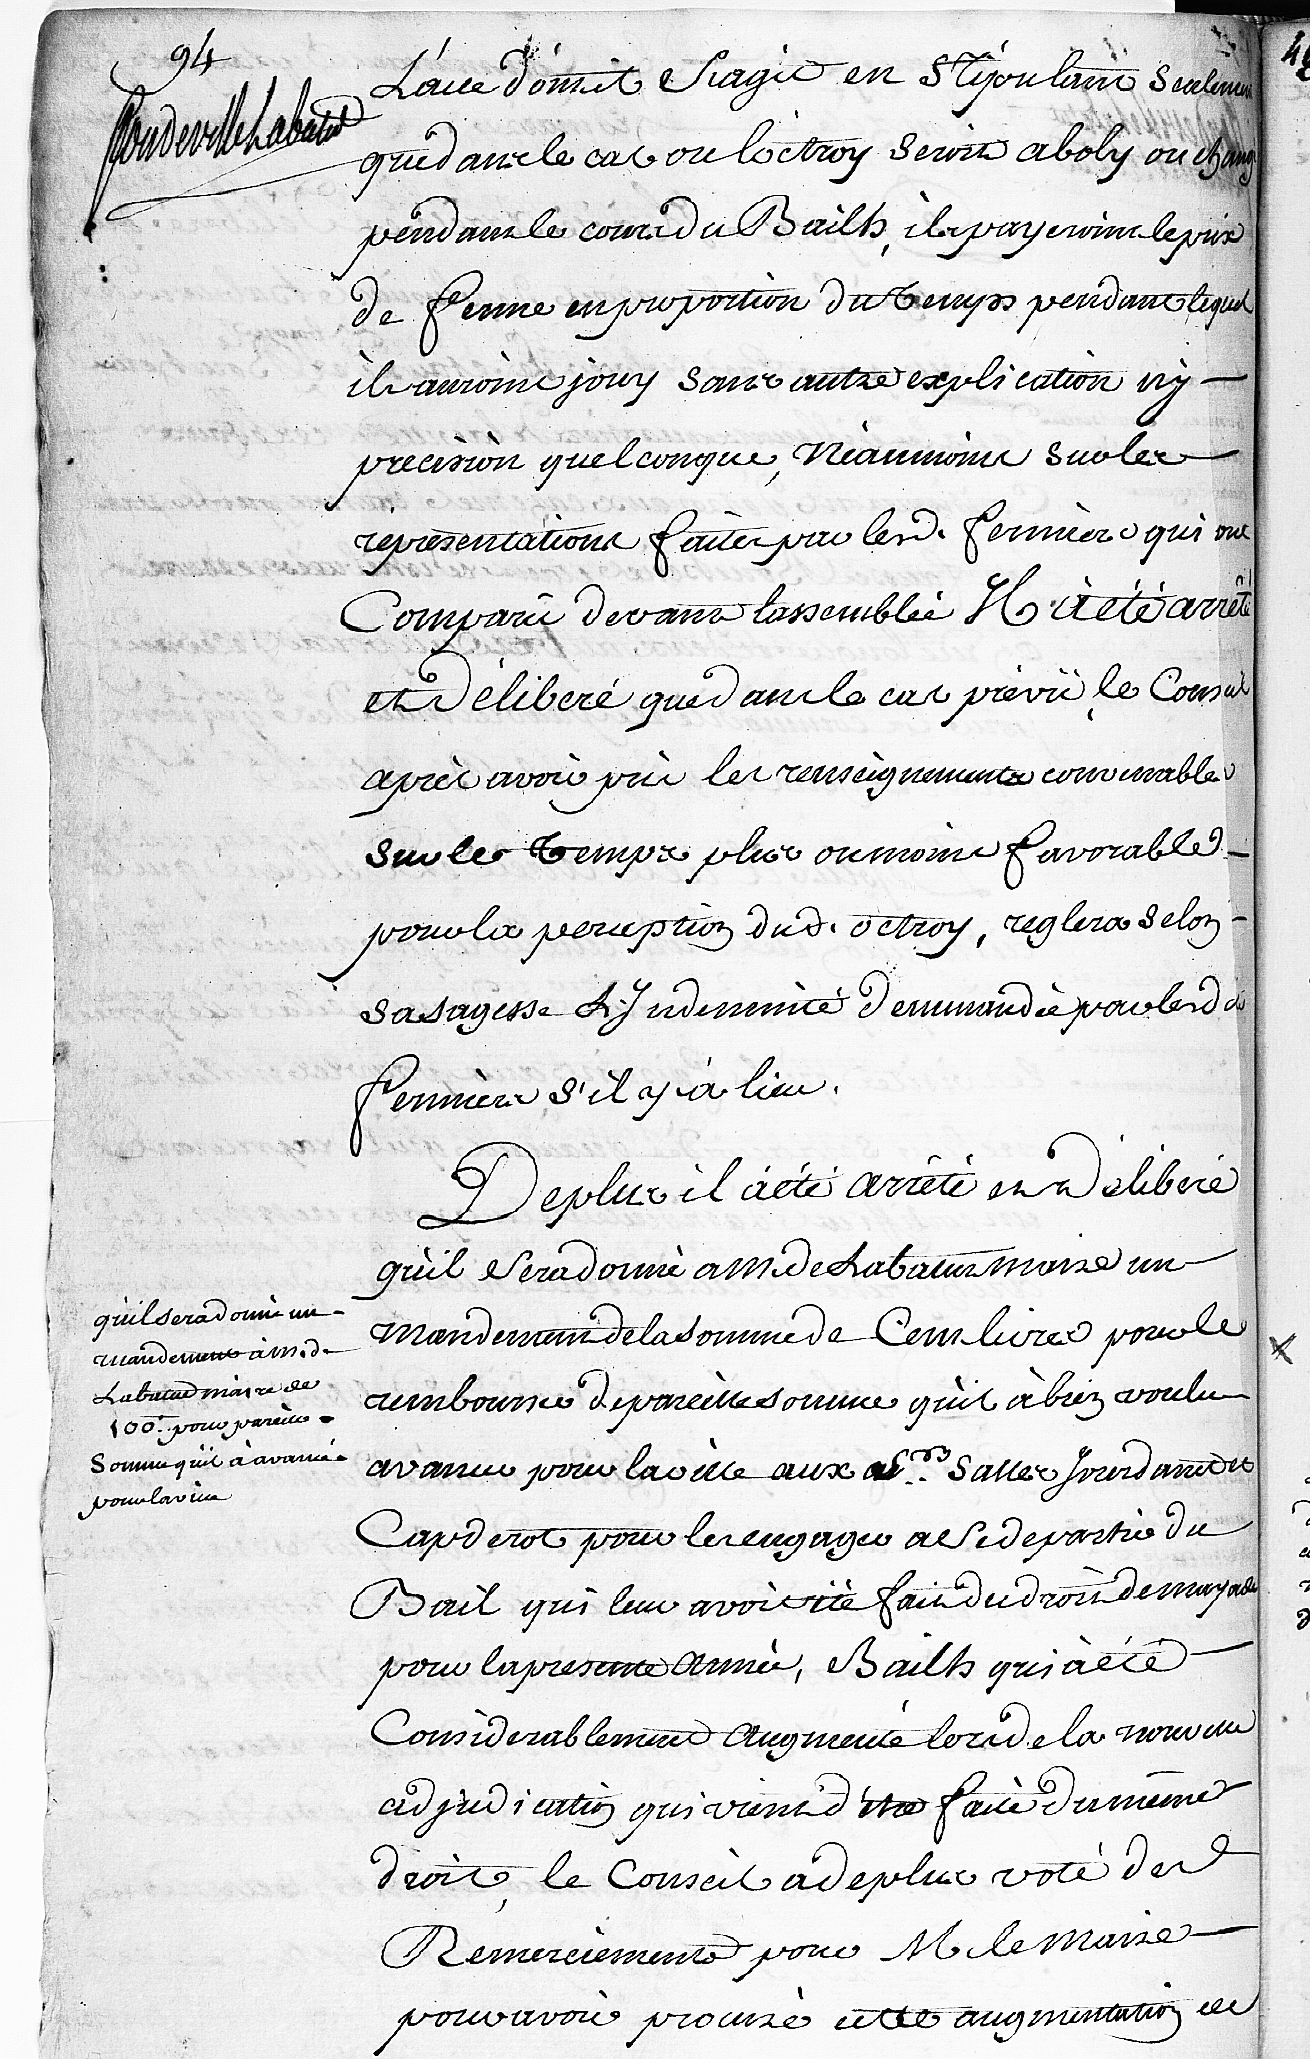 94
L'acte dont il s'agit en stipulant seulement
que dans le cas ou l'octroy seroit aboly ou changé
pendant le cours du Bailh, ils payeroint le prix
de ferme en proportion du temps pendant lequel
ils auroint jouy sans autre explication ny
precision quelconque, Néanmoins sur les
représentations faites par lesd. fermiers qui ont
Comparû devant l'assemblée Il à été arrêté
et Déliberé que dans le cas prévû, le Conseil
après avoir pris les renseignements convenables
sur les temps plus ou moins favorables
pour la perception dud. octroy, reglera selon
sa sagesse L'Indemnité demmandée par lesd
fermiers s'il y à lieu.
De plus il à été arrêté et Déliberé
qu'il sera donné a M. de Labatut maire un
qu'il sera donné un
Mandement de la somme de Cent livres pour le
mandement à M. de
Labatut maire de
rembourser de pareille somme qu'il à bien voulu
100lt pour pareille
somme qu'il à avancé
avancer pour la ville aux Srs Salles Jourdan et
pour la ville
Capderot pour les engager a se departir du
Bail qui leur avoit été fait du droit de mayade
pour la presente année, Bailh qui à été
Considerablement augmenté lors de la nouvelle
adjudication qui vient d'être faite du même
droit, le Conseil a de plus voté des
Remerciements pour M. le Maire
pour avoir procuré cette augmentation de